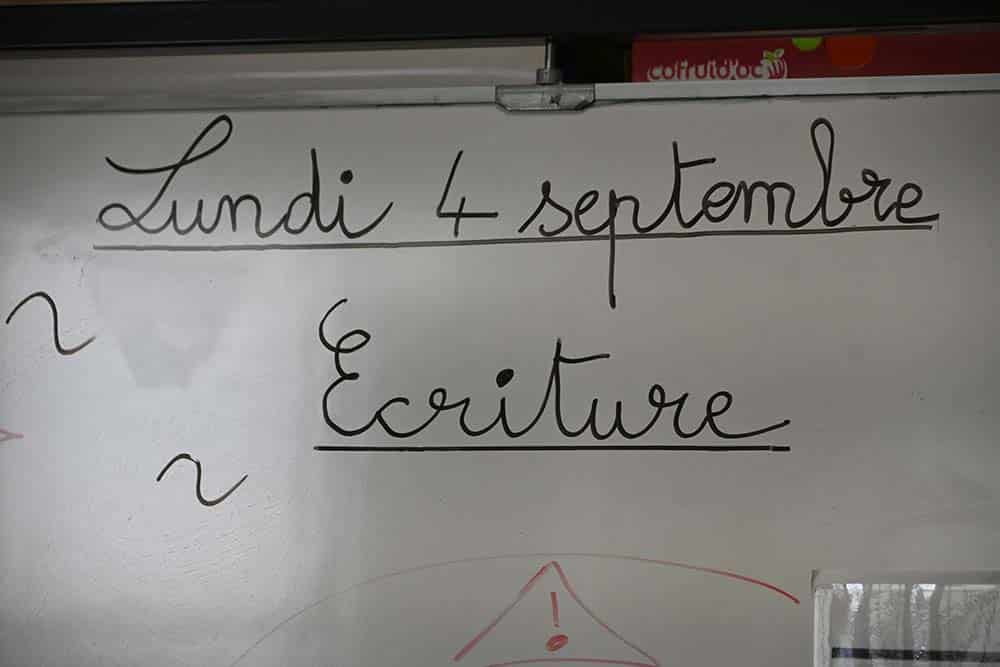 cofruid'oc
Lundi 4 septembre
Ecriture
!